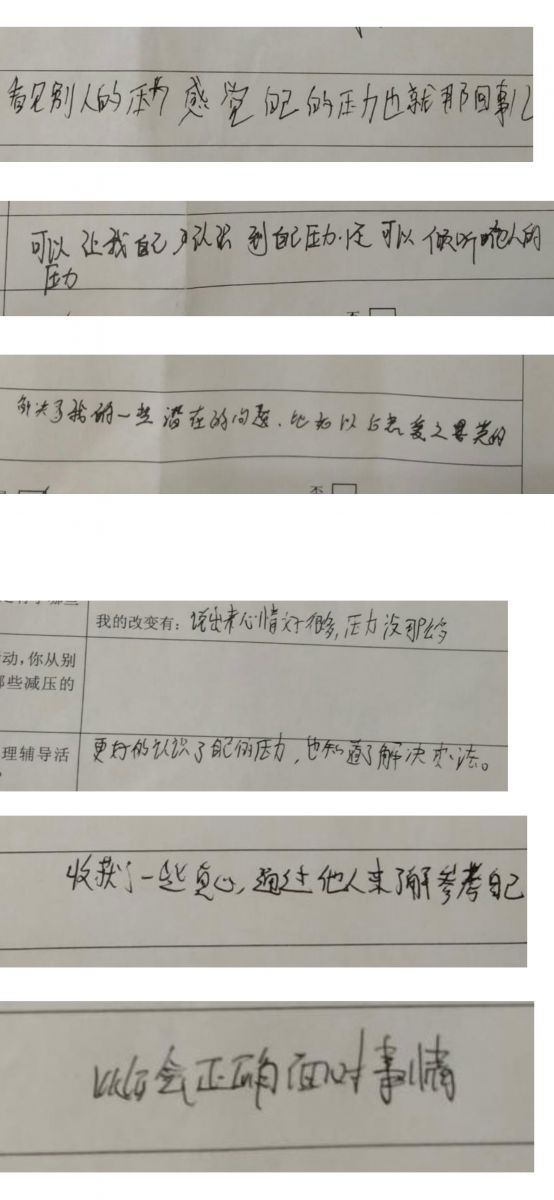 看见别人的压力感觉自己的压力也就那回事儿
可以让我自己认识到自己压力.还可以倾听他人的
压力
否
解决了我的一些潜在的问题.比如以后恋爱之类的
否
我的改变有：说出来心情好很多,压力没那么多
动,你从别
那些减压的
理辅导活
更好的认识了自己的压力，也知道了解决办法。
收获了一些真心,通过他人来了解参考自己
以后会正确面对事情